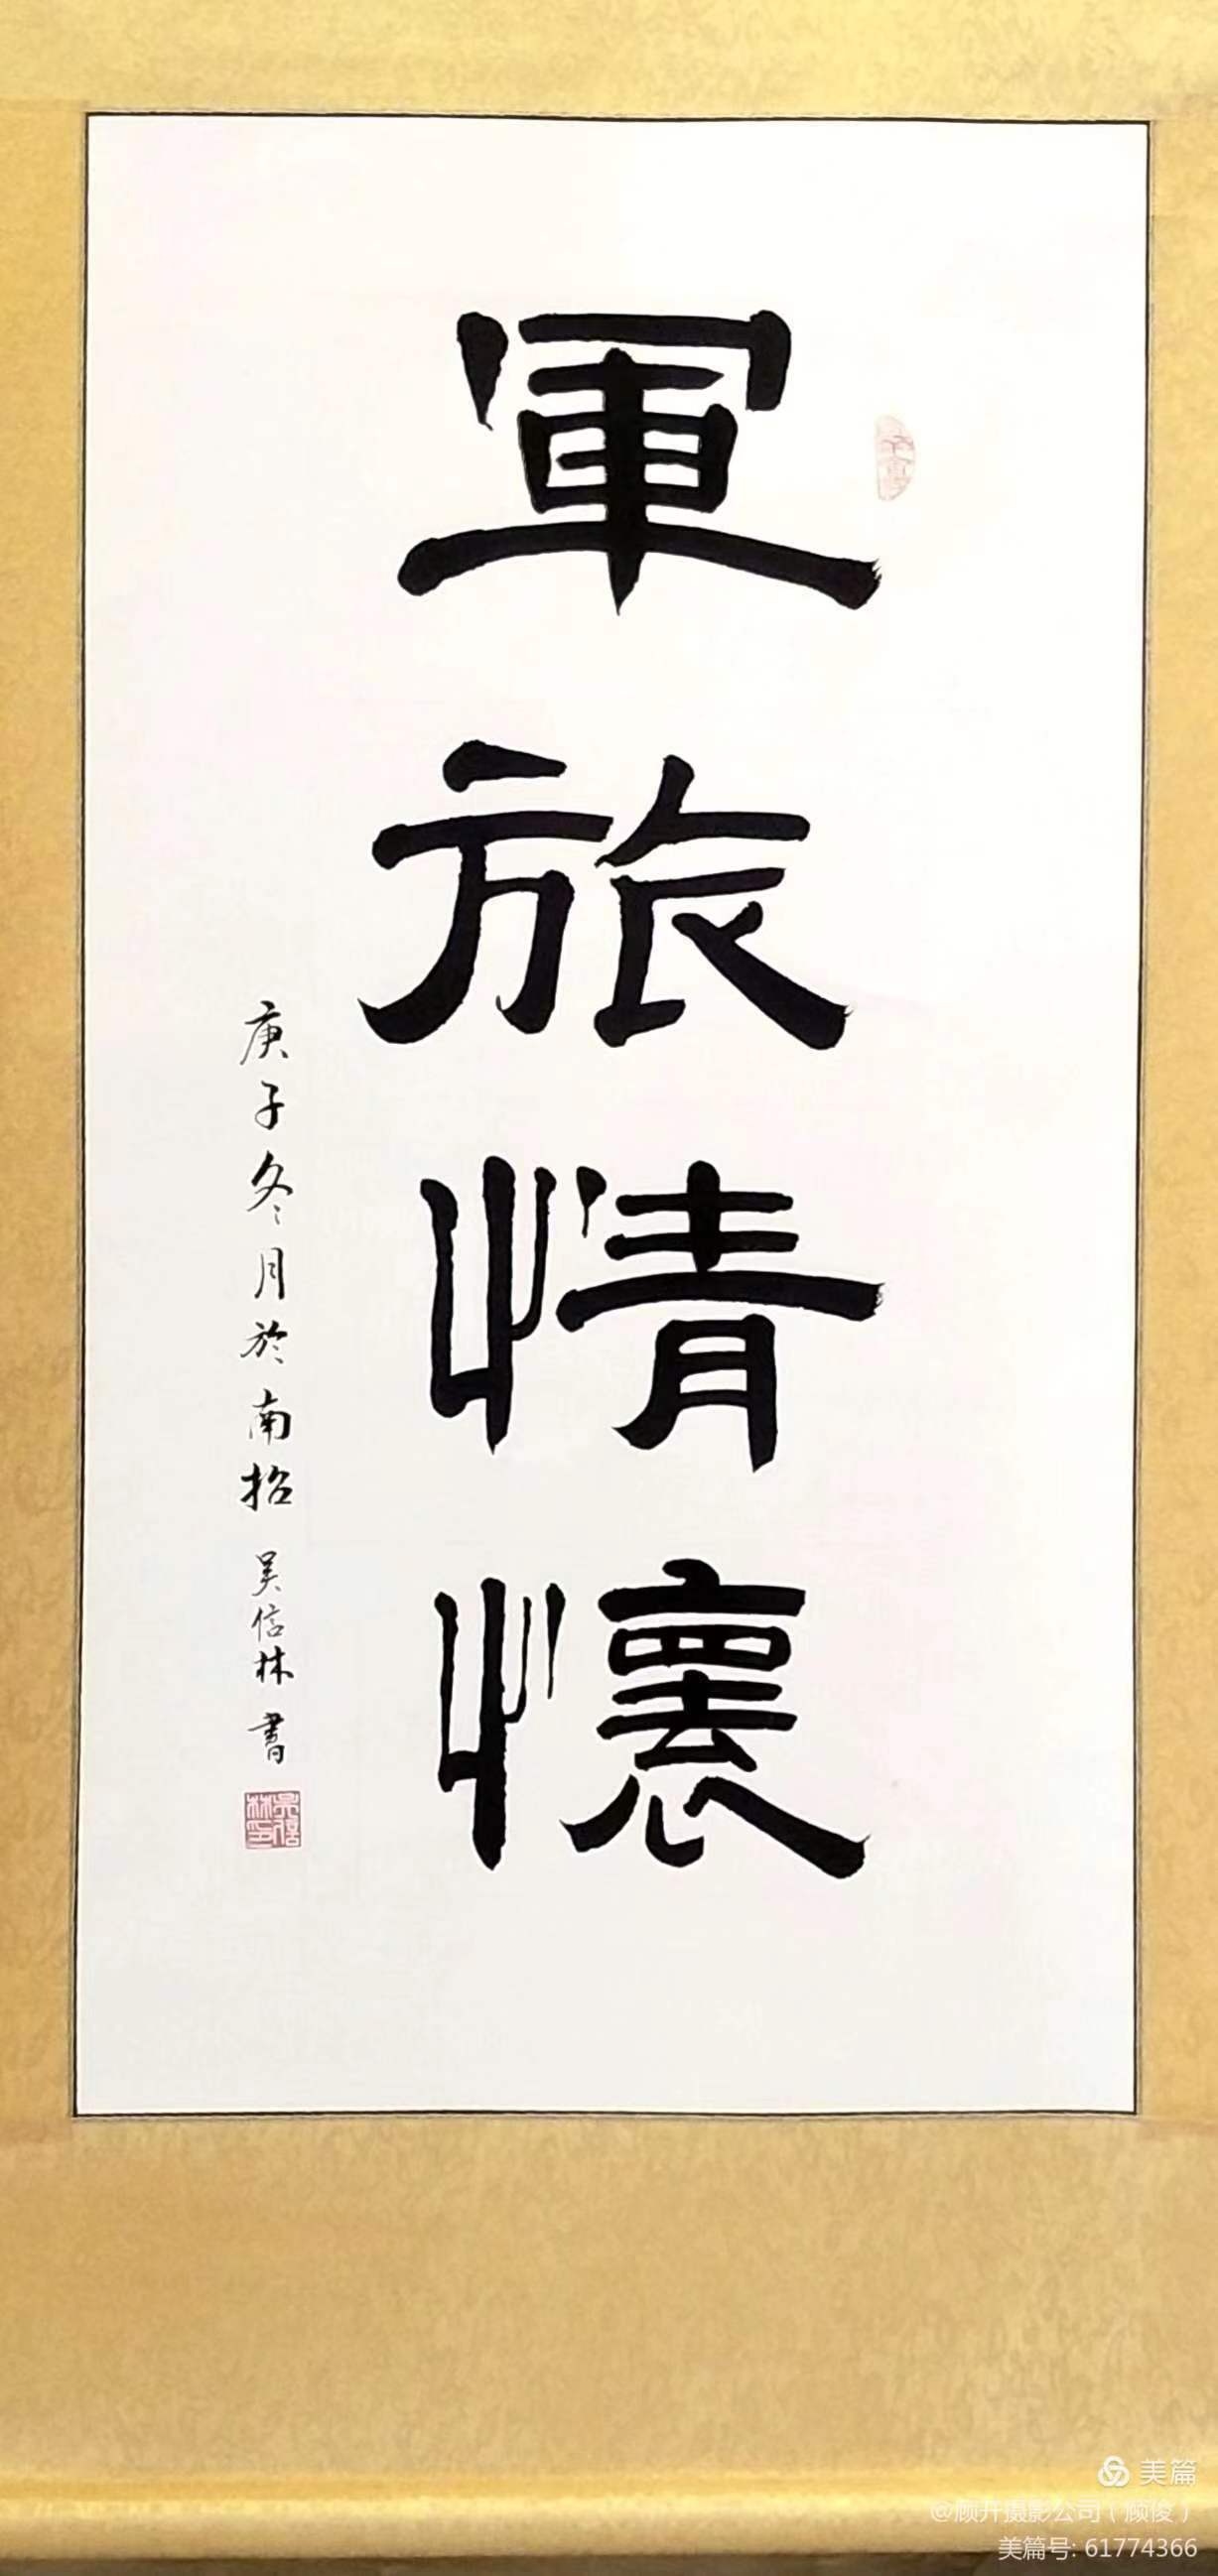 軍旅情懷
庚子冬月於南招 吴信林 書
吴信林印
美篇
@顾开摄影公司（顾俊）
美篇号: 61774366